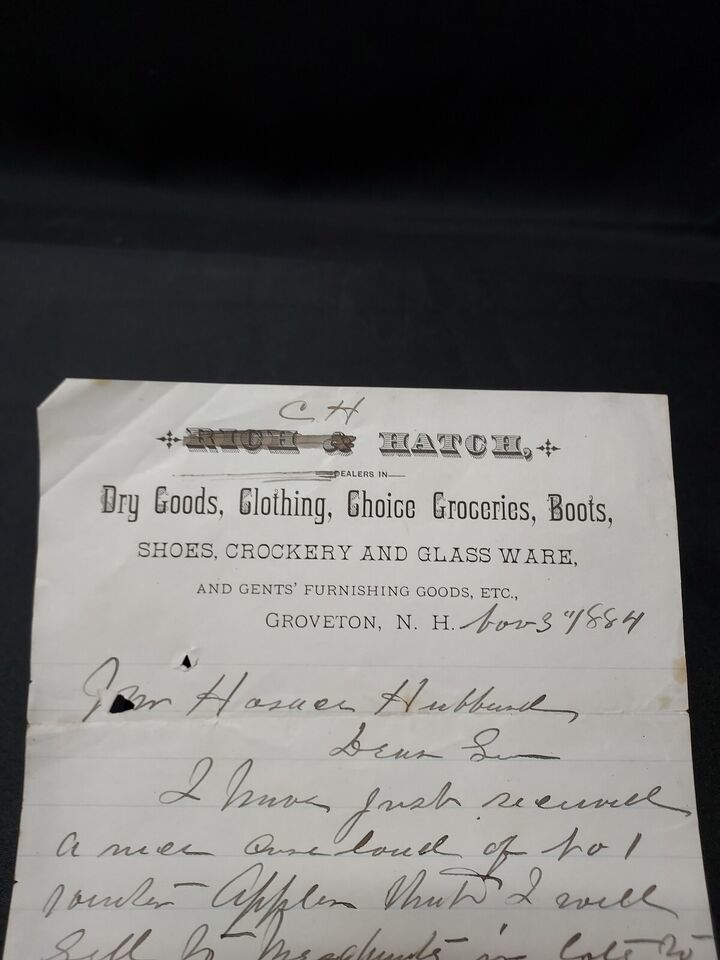 C H
RICH & HATCH,
DEALERS IN
Dry Goods, Clothing, Choice Groceries, Boots,
SHOES, CROCKERY AND GLASS WARE,
AND GENTS' FURNISHING GOODS, ETC.,
GROVETON, N. H. Nov 3rd 1884
Horace Hubbard
Dear Sir
I have just received
a nice car load of No 1
winter Apples that I will
Sell to Merchants in lots to